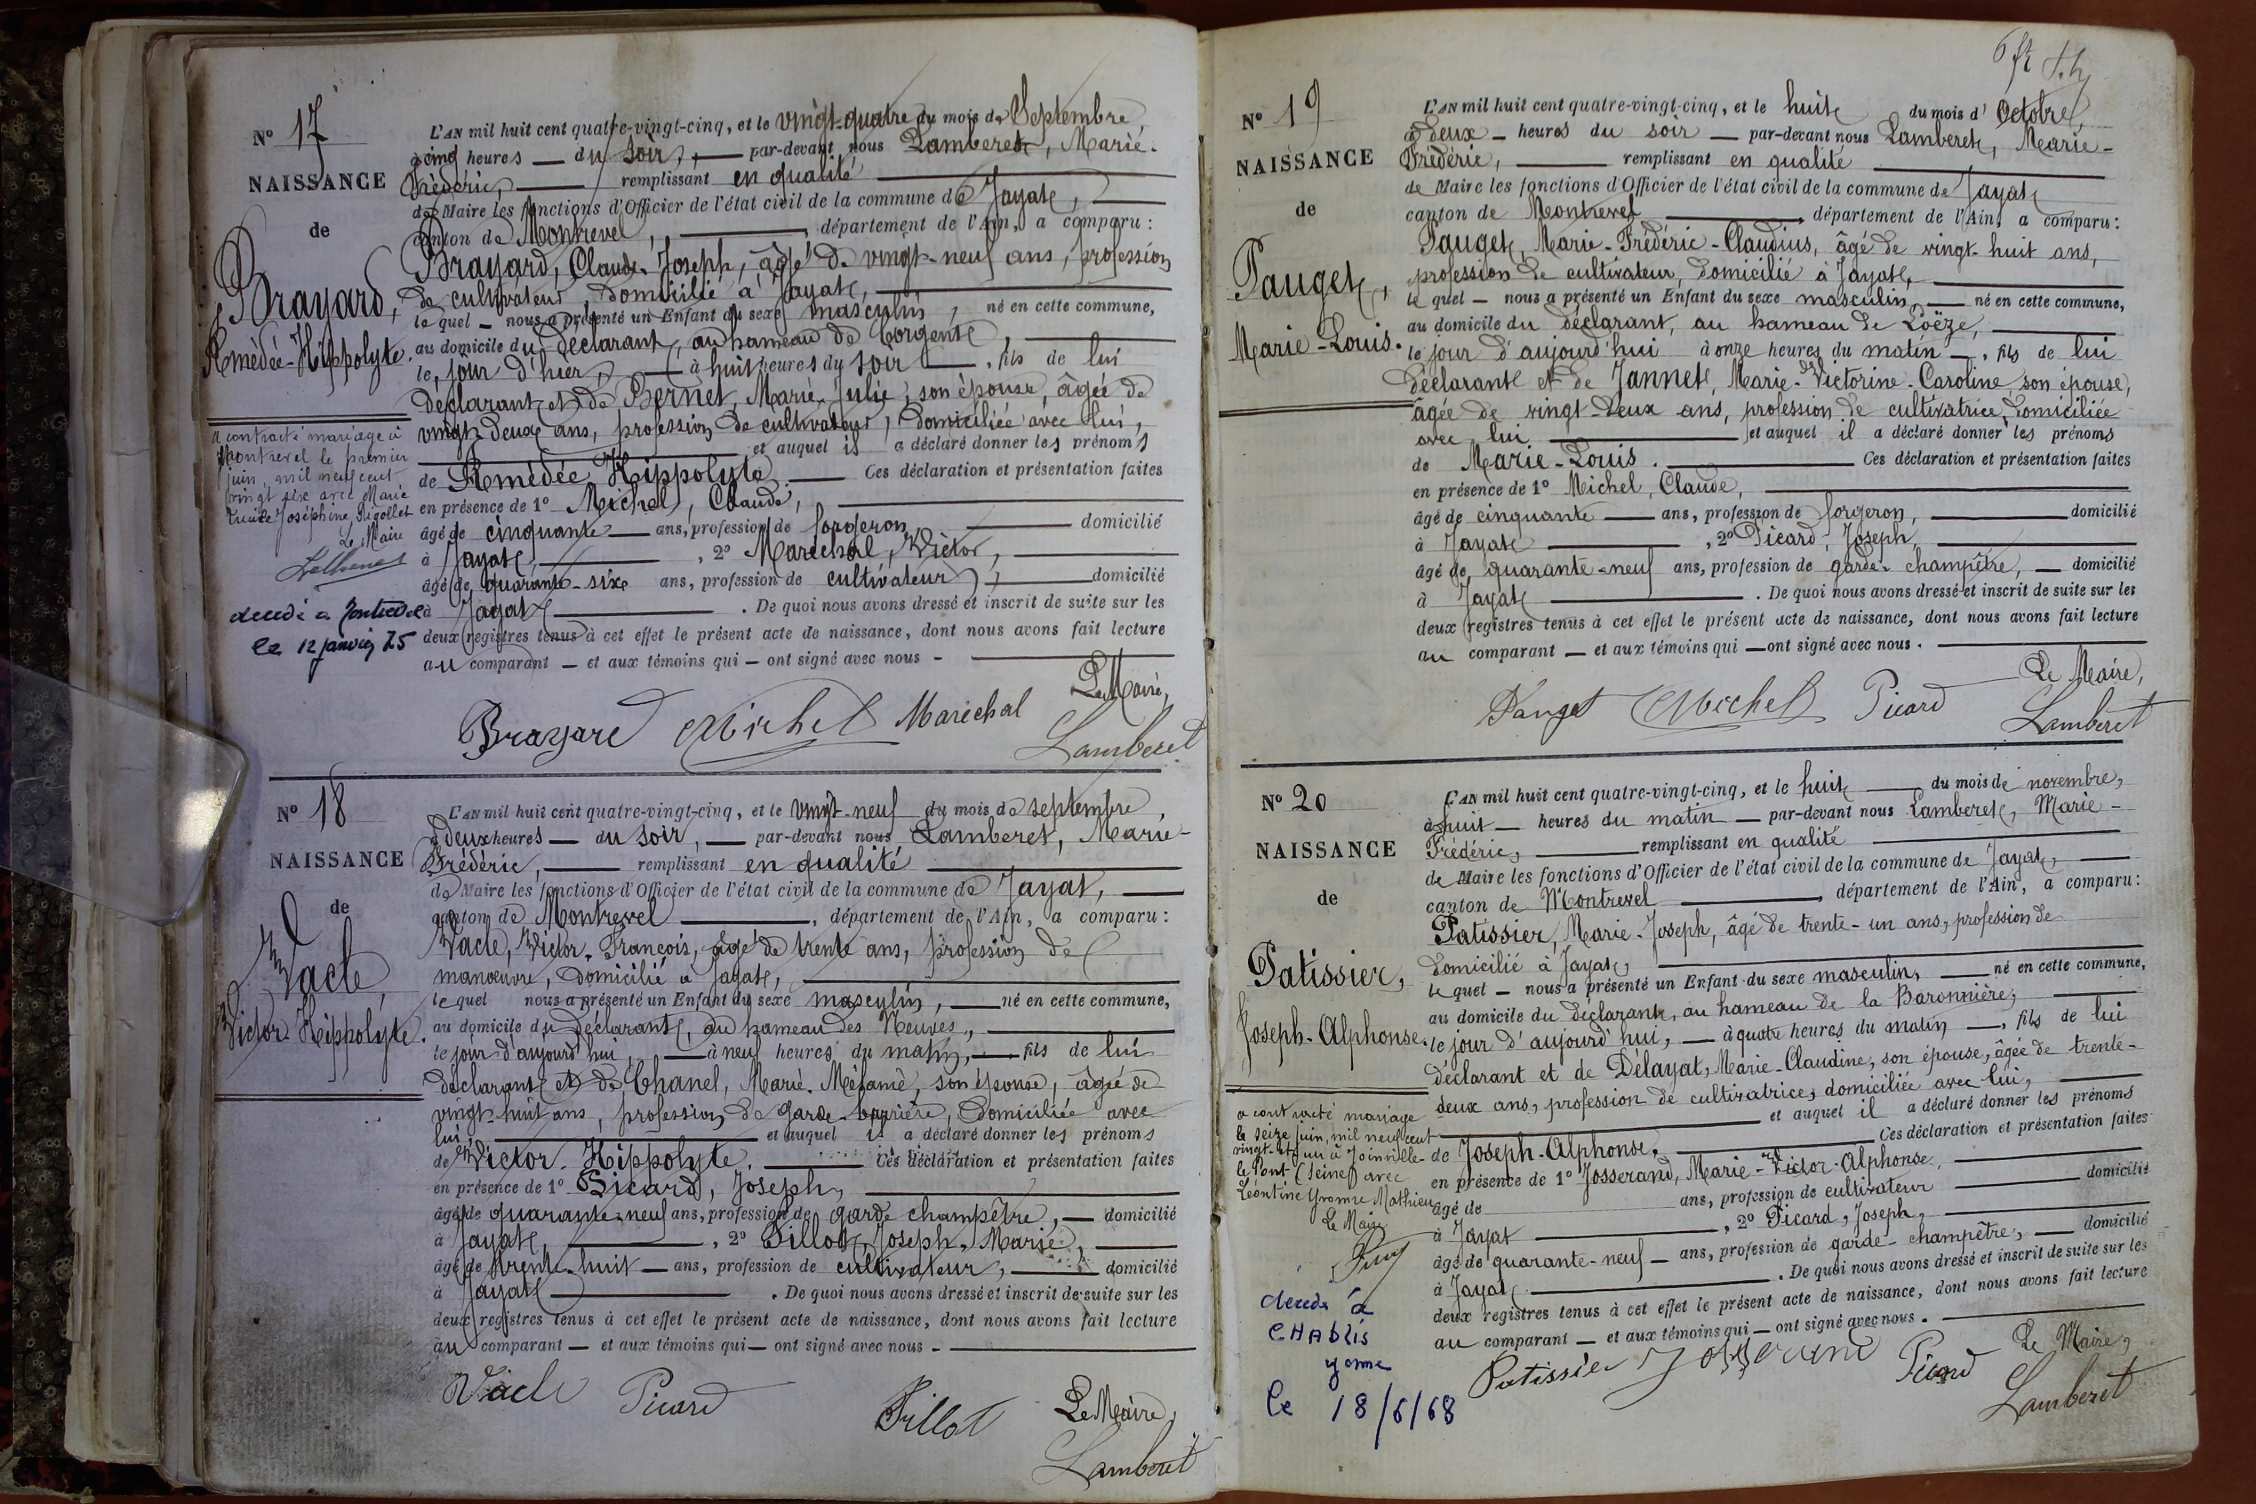 Nº 17
NAISSANCE
de
Brayard,
Amédée-Hippolyte.
a contracté mariage à
Montrevel le premier
juin, mil neuf cent
vingt avec Marie
Joséphine, Pigollet
Le Maire
décédé à Montrevel
le 12 janvier 75
L'AN mil huit cent quatre-vingt-cinq, et le vingt-quatre du mois de Septembre
à cinq heures — du soir, — par-devant nous Lamberet, Marie-
Frédéric, — remplissant en qualité
de Maire les fonctions d'Officier de l'état civil de la commune de Jayat,
canton de Montrevel, — département de l'Ain, a comparu :
Brayard, Claude-Joseph, âgé de vingt-neuf ans, profession
de cultivateur, domicilié à Jayat,
le quel — nous a présenté un Enfant du sexe masculin, né en cette commune,
au domicile du déclarant, au hameau de Corgent,
le jour d'hier, — à huit heures du soir —, fils de lui
déclarant et de Bernet, Marie-Julie, son épouse, âgée de
vingt-deux ans, profession de cultivateur, domiciliée avec lui,
et auquel il a déclaré donner les prénoms
de Amédée-Hippolyte. — Ces déclaration et présentation faites
en présence de 1º Michel, Claude,
âgé de cinquante — ans, profession de forgeron, — domicilié
à Jayat, — , 2º Maréchal, Victor,
âgé de quarante-six ans, profession de cultivateur, — domicilié
à Jayat — . De quoi nous avons dressé et inscrit de suite sur les
deux registres tenus à cet effet le présent acte de naissance, dont nous avons fait lecture
au comparant — et aux témoins qui — ont signé avec nous —
Le Maire,
Brayard Michel Maréchal
Lamberet
Nº 18
NAISSANCE
de
Vacle,
Victor-Hippolyte.
L'AN mil huit cent quatre-vingt-cinq, et le vingt-neuf du mois de septembre,
à deux heures — du soir, — par-devant nous Lamberet, Marie-
Frédéric, — remplissant en qualité
de Maire les fonctions d'Officier de l'état civil de la commune de Jayat,
canton de Montrevel —, département de l'Ain, a comparu :
Vacle, Victor-François, âgé de trente ans, profession de
manœuvre, domicilié à Jayat,
le quel nous a présenté un Enfant du sexe masculin, — né en cette commune,
au domicile du déclarant, au hameau des Neuves,
le jour d'aujourd'hui, — à neuf heures du matin, — fils de lui
déclarant et de Chanel, Marie-Mélanie, son épouse, âgée de
vingt-huit ans, profession de garde-barrière, domiciliée avec
lui, — et auquel il a déclaré donner les prénoms
de Victor-Hippolyte. — Ces déclaration et présentation faites
en présence de 1º Picard, Joseph,
âgé de quarante-neuf ans, profession de garde champêtre, — domicilié
à Jayat, — , 2º Pillot, Joseph-Marie,
âgé de trente-huit — ans, profession de cultivateur, — domicilié
à Jayat — . De quoi nous avons dressé et inscrit de suite sur les
deux registres tenus à cet effet le présent acte de naissance, dont nous avons fait lecture
au comparant — et aux témoins qui — ont signé avec nous —
Vacle Picard Pillot Le Maire,
Lamberet
Nº 19
NAISSANCE
de
Pauget,
Marie-Louis.
L'AN mil huit cent quatre-vingt-cinq, et le huit du mois d'Octobre,
à deux — heures du soir — par-devant nous Lamberet, Marie-
Frédéric, — remplissant en qualité
de Maire les fonctions d'Officier de l'état civil de la commune de Jayat
canton de Montrevel —, département de l'Ain, a comparu :
Pauget, Marie-Frédéric-Claudius, âgé de vingt-huit ans,
profession de cultivateur, domicilié à Jayat,
le quel — nous a présenté un Enfant du sexe masculin, — né en cette commune,
au domicile du déclarant, au hameau de Loëze,
le jour d'aujourd'hui à onze heures du matin —, fils de lui
déclarant et de Jannet, Marie-Victorine-Caroline son épouse,
âgée de vingt-deux ans, profession de cultivatrice, domiciliée
avec lui — et auquel il a déclaré donner les prénoms
de Marie-Louis. — Ces déclaration et présentation faites
en présence de 1º Michel, Claude,
âgé de cinquante — ans, profession de forgeron, — domicilié
à Jayat — , 2º Picard, Joseph
âgé de quarante-neuf ans, profession de garde-champêtre, — domicilié
à Jayat — . De quoi nous avons dressé et inscrit de suite sur les
deux registres tenus à cet effet le présent acte de naissance, dont nous avons fait lecture
au comparant — et aux témoins qui — ont signé avec nous .
Le Maire,
Pauget Michel Picard Lamberet
Nº 20
NAISSANCE
de
Patissier,
Joseph-Alphonse.
a contracté mariage
le seize juin, mil neuf cent
vingt-et-un à Joinville-
le Pont (Seine) avec
Léontine Yvonne Mathieu
Le Maire
décédé à
CHABLIS
yonne
le 18/6/68
L'AN mil huit cent quatre-vingt-cinq, et le huit — du mois de novembre,
à huit — heures du matin — par-devant nous Lamberet, Marie-
Frédéric, — remplissant en qualité
de Maire les fonctions d'Officier de l'état civil de la commune de Jayat, —
canton de Montrevel —, département de l'Ain, a comparu :
Patissier, Marie-Joseph, âgé de trente-un ans, profession de
domicilié à Jayat,
le quel — nous a présenté un Enfant du sexe masculin, — né en cette commune,
au domicile du déclarant, au hameau de la Baronnière,
le jour d'aujourd'hui, — à quatre heures du matin —, fils de lui
déclarant et de Délayat, Marie-Claudine, son épouse, âgée de trente-
deux ans, profession de cultivatrice, domiciliée avec lui,
et auquel il a déclaré donner les prénoms
de Joseph-Alphonse. — Ces déclaration et présentation faites
en présence de 1º Josserand, Marie-Victor-Alphonse,
âgé de ans, profession de cultivateur — domicilié
à Jayat — , 2º Picard, Joseph,
âgé de quarante-neuf — ans, profession de garde-champêtre, — domicilié
à Jayat — . De quoi nous avons dressé et inscrit de suite sur les
deux registres tenus à cet effet le présent acte de naissance, dont nous avons fait lecture
au comparant — et aux témoins qui — ont signé avec nous .
Le Maire,
Patissier Josserand Picard
Lamberet